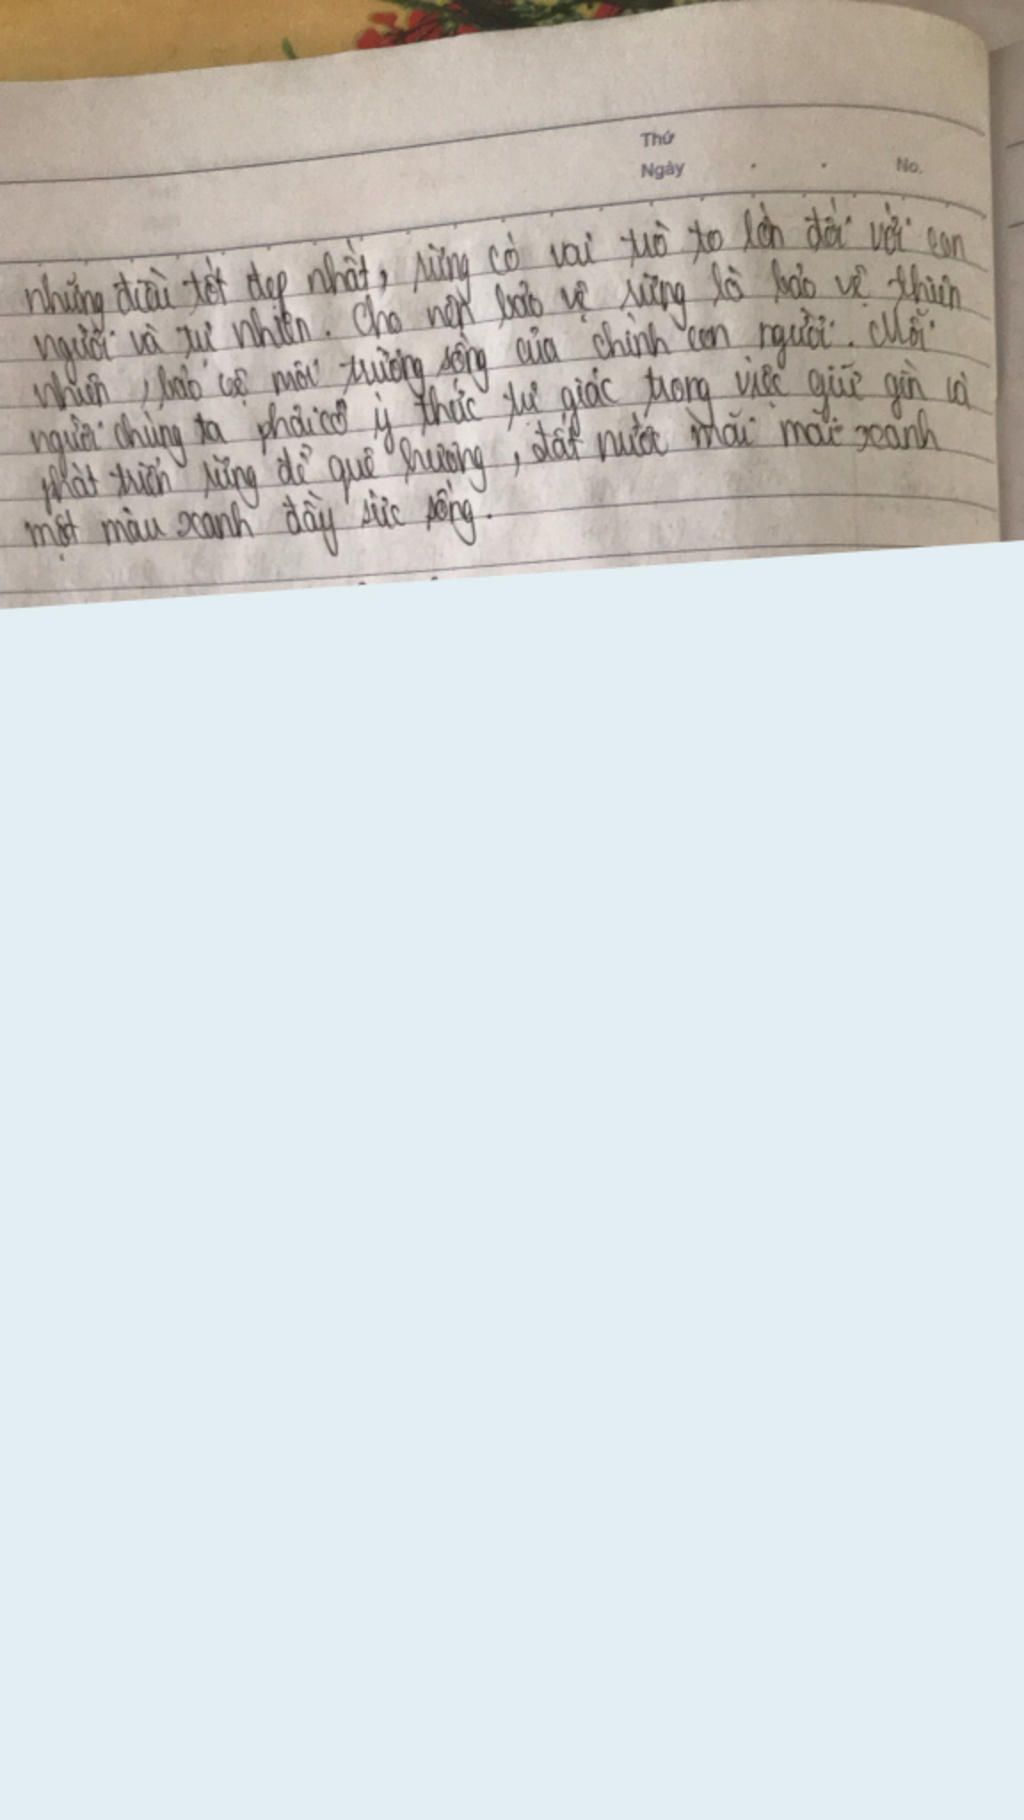 Thứ
Ngày . . No.
những điều tốt đẹp nhất, rừng có vai trò to lớn đối với con
người và tự nhiên. Cho nên bảo vệ rừng là bảo vệ thiên
nhiên, bảo vệ môi trường sống của chính con người. Mỗi
người chúng ta phải có ý thức tự giác trong việc giữ gìn và
phát triển rừng để quê hương, đất nước mãi mãi xanh
một màu xanh đầy sức sống.